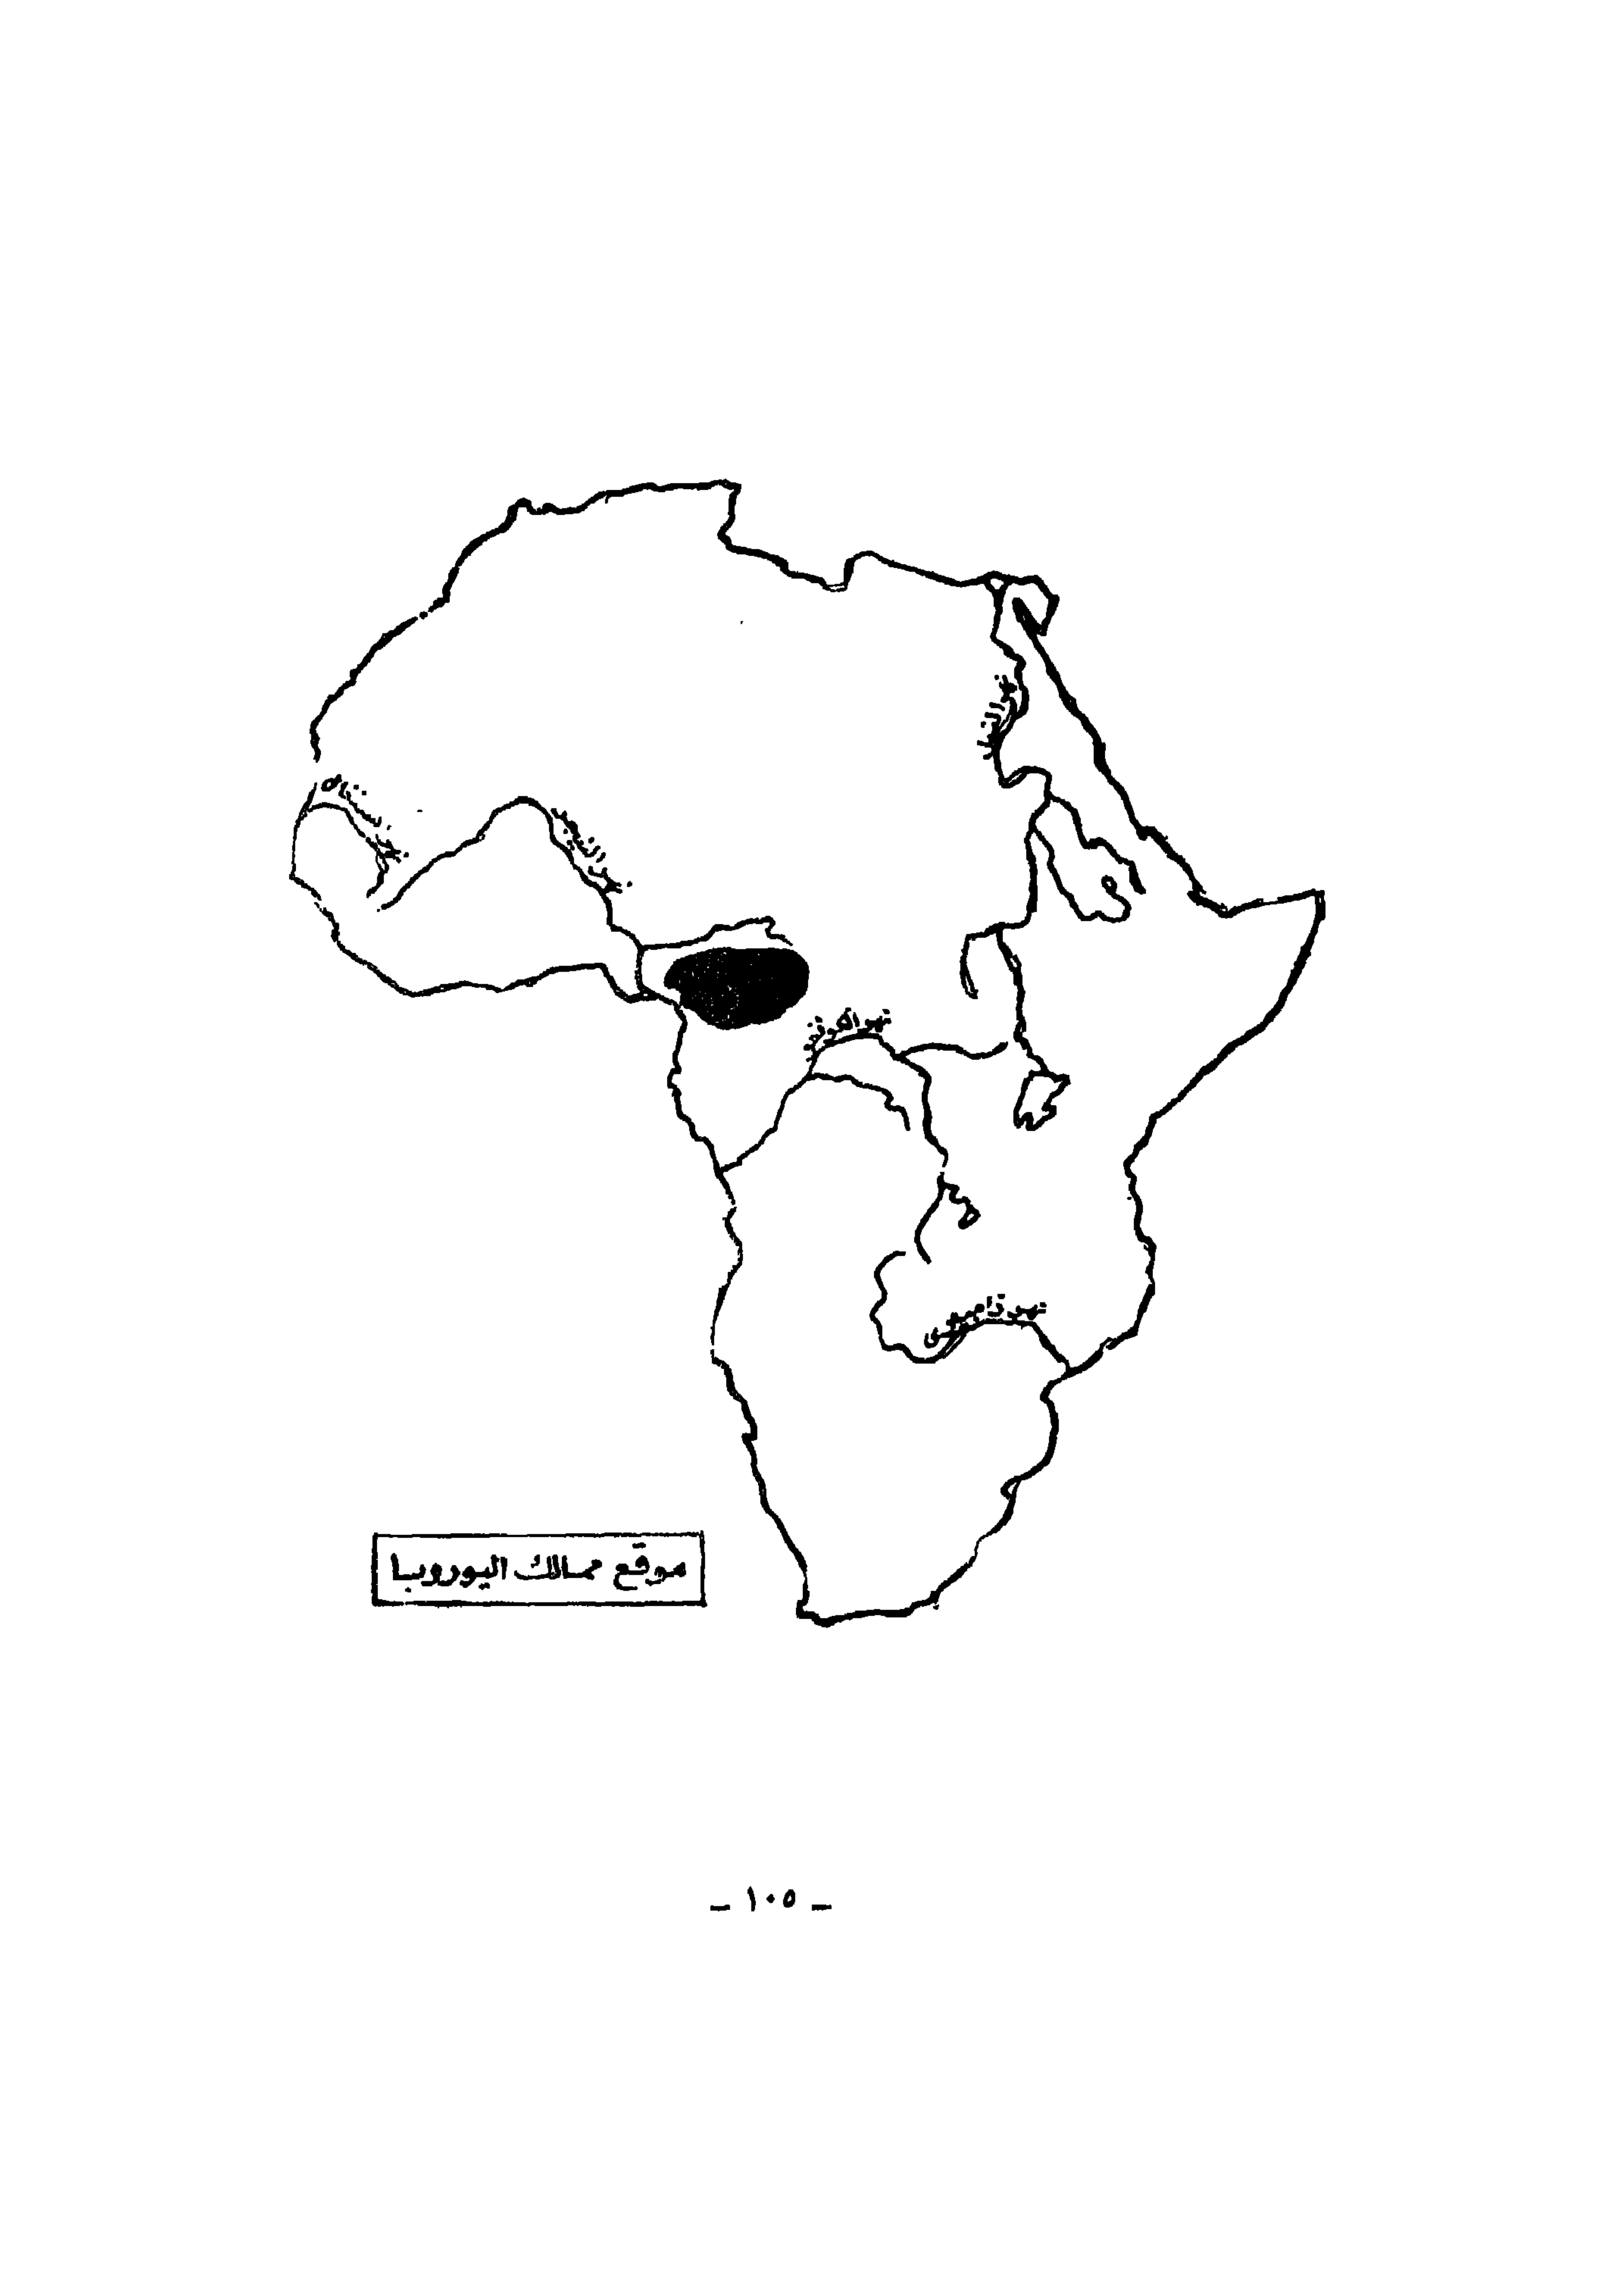 نهر النيل
نهر السنغال
نهر النيجر
نهر الكونغو
نهر زامبيزى
موقع ممالك اليوروبا
– ١٠٥ –